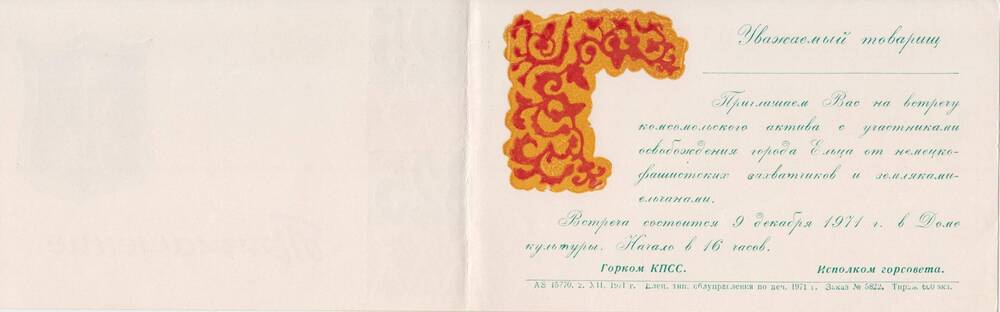 Уважаемый товарищ
Приглашаем Вас на встречу
комсомольского актива с участниками
освобождения города Ельца от немецко-
фашистских захватчиков и земляками-
ельчанами.
Встреча состоится 9 декабря 1971 г. в Доме
культуры. Начало в 16 часов.
Горком КПСС. Исполком горсовета.
АЯ 15770. 2. XII. 1971 г. тип. облуправления по печ. 1971 г. Заказ № 5822. Тираж 600 экз.